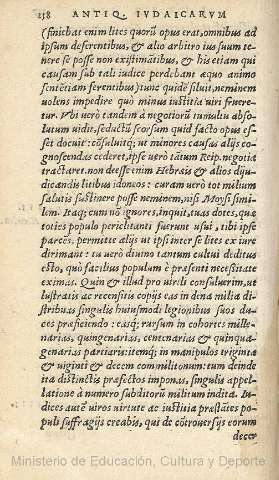 238 ANTIQ. IVDAICARVM
(finiebat enim lites quorū opus erat, omnibus ad
ipsum deferentibus, & alio arbitro ius suum te-
nere se posse non existimātibus, & his etiam qui
causam sub tali iudice perdebant æquo animo
sententiam ferentibus) tunc quidē siluit, neminem
uolens impedire quò minus iustitia uiri fruere-
tur. Vbi uerò tandem à negotiorū tumultu abso-
lutum uidit, seductū seorsum quid facto opus es-
set docuit: cōsuluitq; ut minores causas alijs co-
gnoscendas cederet, ipse uerò tātum Reip. negotia
tractaret. non deesse enim Hebræis & alios diju-
dicandis litibus idoneos: curam uerò tot milium
salutis sustinere posse neminem, nisi Moysi simi-
lem. Itaq; cum nō ignores, inquit, tuas dotes, quæ
toties populo periclitanti fuerunt usui, tibi ipse
parcēs, permitte alijs ut ipsi inter se lites ex iure
dirimant: tu uerò diuino tantum cultui deditus
esto, quò facilius populum è præsenti necessitate
eximas. Quin & illud pro uirili consuluerim, ut
lustratis ac recensitis copijs eas in dena milia di-
stribuas singulis huiusmodi legionibus suos du-
ces præficiendo: easq; rursum in cohortes mille-
narias, quingenarias, centenarias & quinqua-
genarias partiaris: itemq; in manipulos triginta
& uiginti & decem commilitonum: tum deinde
ita distinctis præfectos imponas, singulis appel-
latione à numero subditorū militum indita. Iu-
dices autē uiros uirtute ac iustitia præstātes po-
puli suffragijs creabis, qui de cōtrouersijs eorum
decer
Ministerio de Educación, Cultura y Deporte